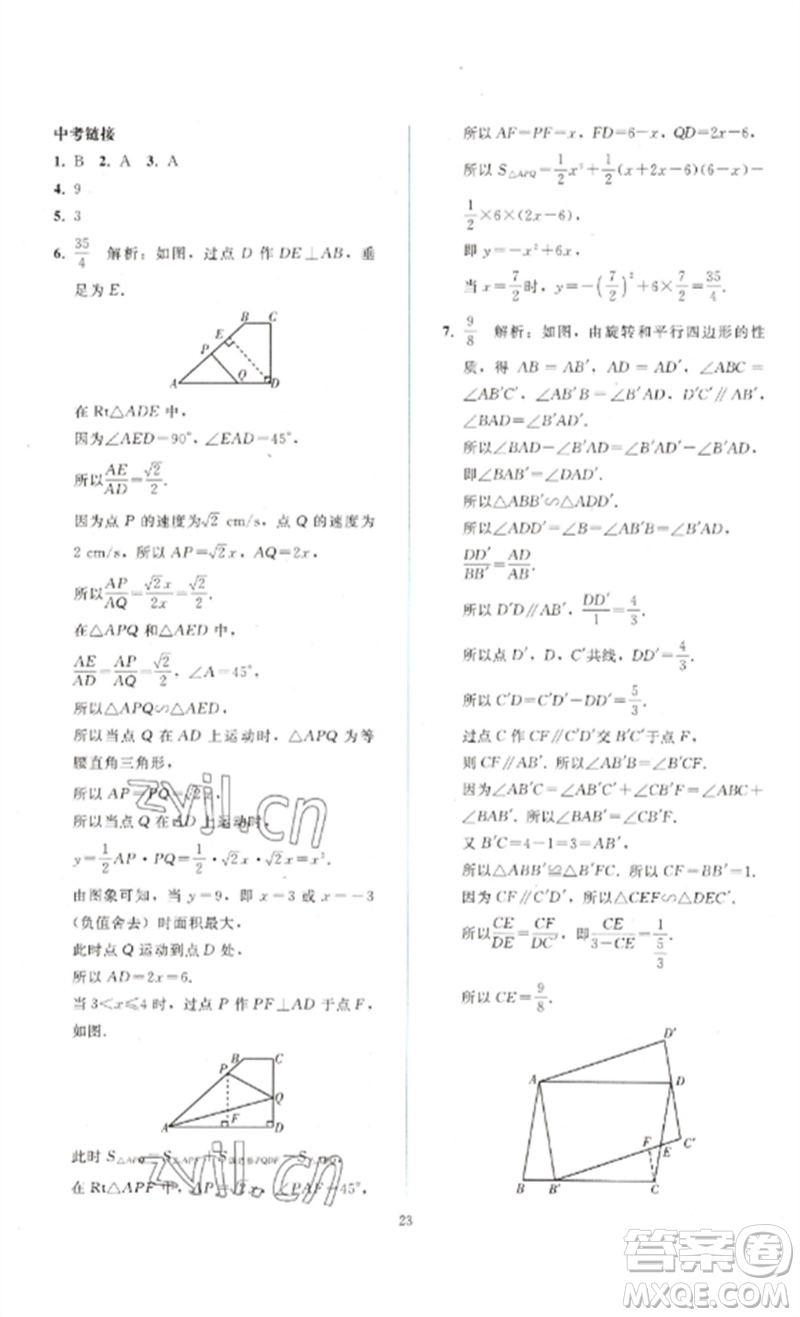 中考链接
1. B  2. A  3. A
4. 9
5. 3
6. 35/4  解析：如图，过点 D 作 DE⊥AB，垂
足为 E.
B C
E
P
A Q D
在 Rt△ADE 中，
因为∠AED=90°，∠EAD=45°，
所以AE/AD=√2/2.
因为点 P 的速度为√2 cm/s，点 Q 的速度为
2 cm/s，所以 AP=√2x，AQ=2x，
所以AP/AQ=√2x/2x=√2/2.
在△APQ 和△AED 中，
AE/AD=AP/AQ=√2/2，∠A=45°，
所以△APQ∽△AED，
所以当点 Q 在 AD 上运动时，△APQ 为等
腰直角三角形，
所以 AP=PQ=√2x.
所以当点 Q 在 AD 上运动时，
y=1/2AP·PQ=1/2·√2x·√2x=x².
由图象可知，当 y=9，即 x=3 或 x=-3
(负值舍去)时面积最大，
此时点 Q 运动到点 D 处，
所以 AD=2x=6.
当 3<x≤4 时，过点 P 作 PF⊥AD 于点 F，
如图.
B C
P
Q
A F D
此时 S△APQ=S
在 Rt△APF 中，AP=√2x，∠PAF=45°，
所以 AF=PF=x，FD=6-x，QD=2x-6，
所以 S△APQ=1/2x²+1/2(x+2x-6)(6-x)-
1/2×6×(2x-6)，
即 y=-x²+6x，
当 x=7/2时，y=-(7/2)²+6×7/2=35/4.
7. 9/8  解析：如图，由旋转和平行四边形的性
质，得 AB=AB′，AD=AD′，∠ABC=
∠AB′C′，∠AB′B=∠B′AD′，∠B′AD′=
∠BAD=∠B′AD′.
所以∠BAD-∠B′AD=∠B′AD′-∠B′AD，
即∠BAB′=∠DAD′.
所以△ABB′∽△ADD′.
所以∠ADD′=∠B=∠AB′B=∠B′AD，
DD′/BB′=AD/AB.
所以 D′D∥AB′，所以DD′/1=4/3.
所以点 D′，D，C′共线，DD′=4/3.
所以 C′D=C′D′-DD′=5/3.
过点 C 作 CF∥C′D′交 B′C′于点 F，
则 CF∥AB′，所以∠AB′F=∠B′FC.
因为∠AB′C=∠AB′C′+∠CB′C′=∠B+
∠BAB′，所以∠CB′C′=∠BAB′.
又 B′C=4-1=3=AB，
所以△ABB′≌△B′FC. 所以 CF=BB′=1.
因为 CF∥DC′，所以△CEF∽△DEC′.
所以CE/DE=CF/DC′，即CE/(3-CE)=1/(5/3).
所以 CE=9/8.
D′
A D
F E C′
B B′ C
23
zyjl.cn
zyjl.cn
答案圈
MXQE.COM